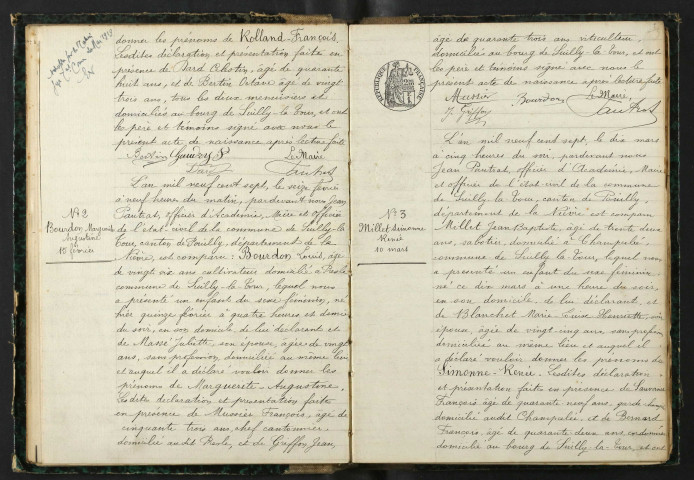 donner les prénoms de Rolland-François.
Lesdites déclaration et présentation faite en
présence de Burd Célestin, âgé de quarante
huit ans, et de Bertin Octave âgé de vingt
trois ans, tous les deux menuisiers et
domiciliés au bourg de Suilly-la-Tour, et ont
le père et témoins signé avec nous le
présent acte de naissance après lecture faite
Bertin
Le Maire
Pautrat
L'an mil neuf cent sept, le seize février
à neuf heures du matin, pardevant nous Jean
Pautrat, officier d'Académie, Maire et officier
de l'état-civil de la commune de Suilly-la-
Tour, canton de Pouilly, département de la
Nièvre, est comparu : Bourdon Louis, âgé
de vingt six ans cultivateur domicilié à
commune de Suilly-la-Tour, lequel nous
a présenté un enfant du sexe féminin, né
hier quinze février à quatre heures et demie
du soir, en son domicile de lui déclarant et
de Massé Juliette, son épouse, âgée de vingt
ans, sans profession, domiciliée au même lieu
et auquel il a déclaré vouloir donner les
prénoms de Marguerite-Augustine.
Lesdites déclaration et présentation faite
en présence de Musnier François, âgé de
cinquante trois ans, chef cantonnier,
domicilié audit et de Griffon Jean,
N° 2
Bourdon Marguerite
Augustine
février
âgé de quarante trois ans viticulteur,
domicilié au bourg de Suilly-la-Tour, et ont
les père et témoins signé avec nous le
présent acte de naissance après lecture faite
Bourdon
Le Maire
J. Griffon
Pautrat
RÉPUBLIQUE FRANÇAISE
L'an mil neuf cent sept, le dix mars
à cinq heures du soir, pardevant nous
Jean Pautrat, officier d'Académie, Maire
et officier de l'état civil de la commune
de Suilly-la-Tour, canton de Pouilly,
département de la Nièvre est comparu
Millet Jean Baptiste, âgé de trente deux
ans, sabotier, domicilié à Champcelée
commune de Suilly la Tour, lequel nous
a présenté un enfant du sexe féminin
né ce dix mars à une heure du soir,
en son domicile, de lui déclarant, et
de Blanchet Marie Louise Henriette, son
épouse, âgée de vingt cinq ans sans profession
domiciliée au même lieu et auquel il a
a déclaré vouloir donner les prénoms de
Simonne-Renée. Lesdites déclaration
et présentation faite en présence de
François, âgé de quarante neuf ans, garde
domicilié audit Champcelée et de Bernard
François, âgé de quarante deux ans, cordonnier
domicilié au bourg de Suilly-la-Tour, et ont
N° 3
Millet Simonne
Renée
10 mars